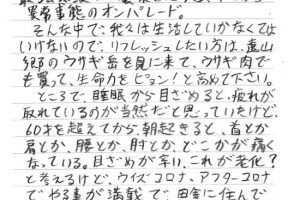 異常事態のオンパレード。
そんな中で、我々は生活していかなくては
いけないので、リフレッシュしたい方は、遠山
郷のウサギ岳を見に来て、ウサギ肉で
も買って、生命力をピョン!と高めて下さい。
ところで、睡眠から目ざめると、疲れが
取れているのが当然だと思っていたけど、
60才を超えてから、朝起きると、首とか
肩とか、腰とか、肘とか、どこかが痛く
なっている。目ざめが辛い、これが老化?
と考えるけど、ウイズコロナ、アフターコロナ
でやる事が満載で、田舎に住んで